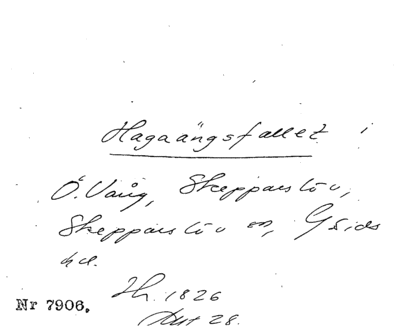 Hagaängsfallet i
Ö. Vång, Skepparslöv,
Skepparslöv sn, Gärds
hd.
Nr 7906. Th. 1826
Akt 28.